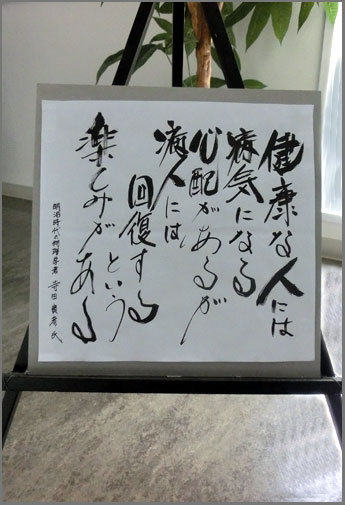 健康な人には
病気になる
心配があるが
病人には
回復する
という
楽しみがある
明治時代の物理学者 寺田寅彦氏